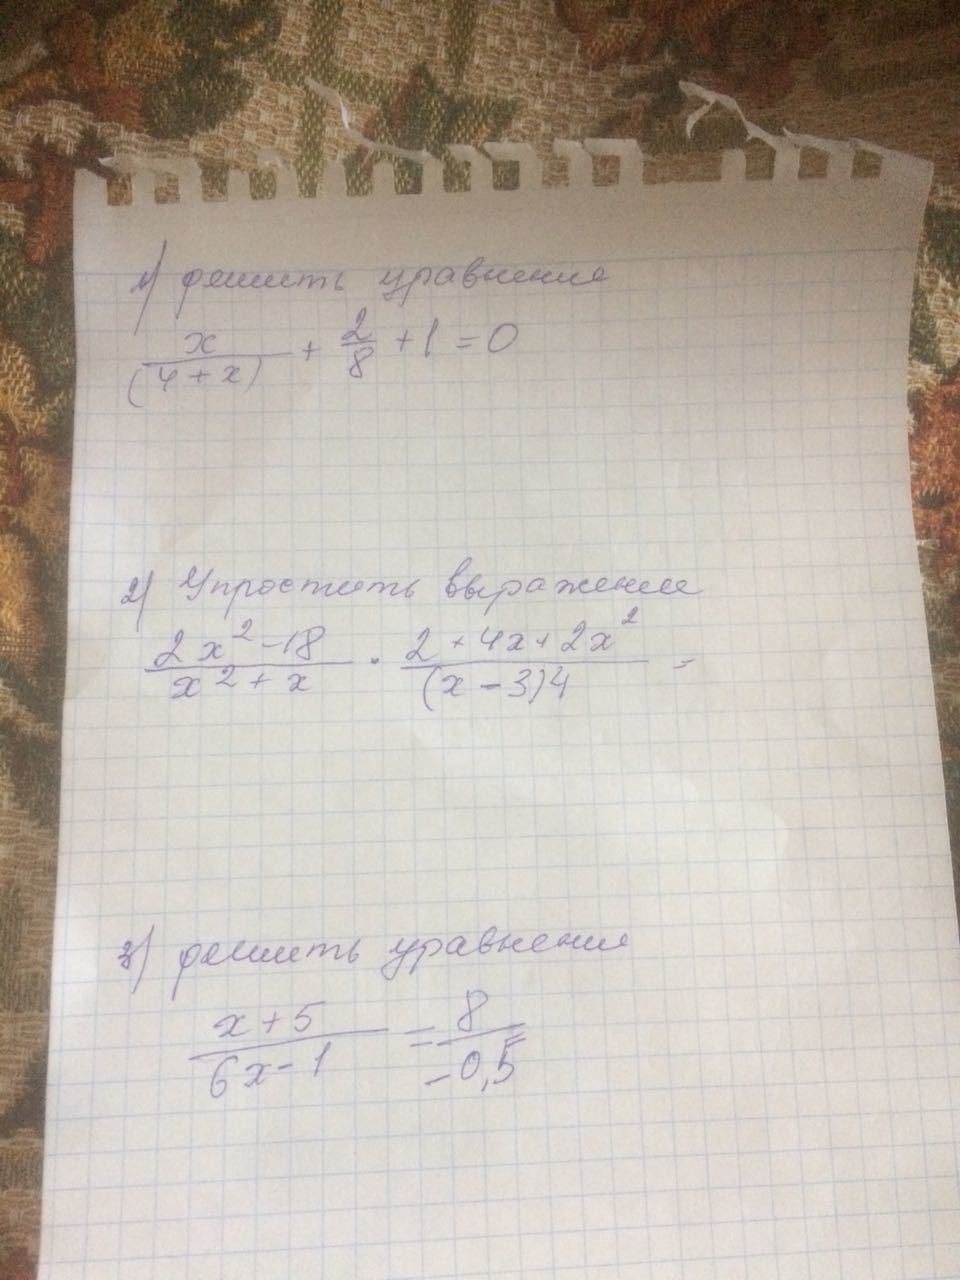 1) решить уравнение
x/(4+x) + 2/8 + 1 = 0
2) Упростить выражение
(2x² - 18)/(x² + x) · (2 + 4x + 2x²)/((x - 3)4) =
3) решить уравнение
(x + 5)/(6x - 1) = 8/(-0,5)